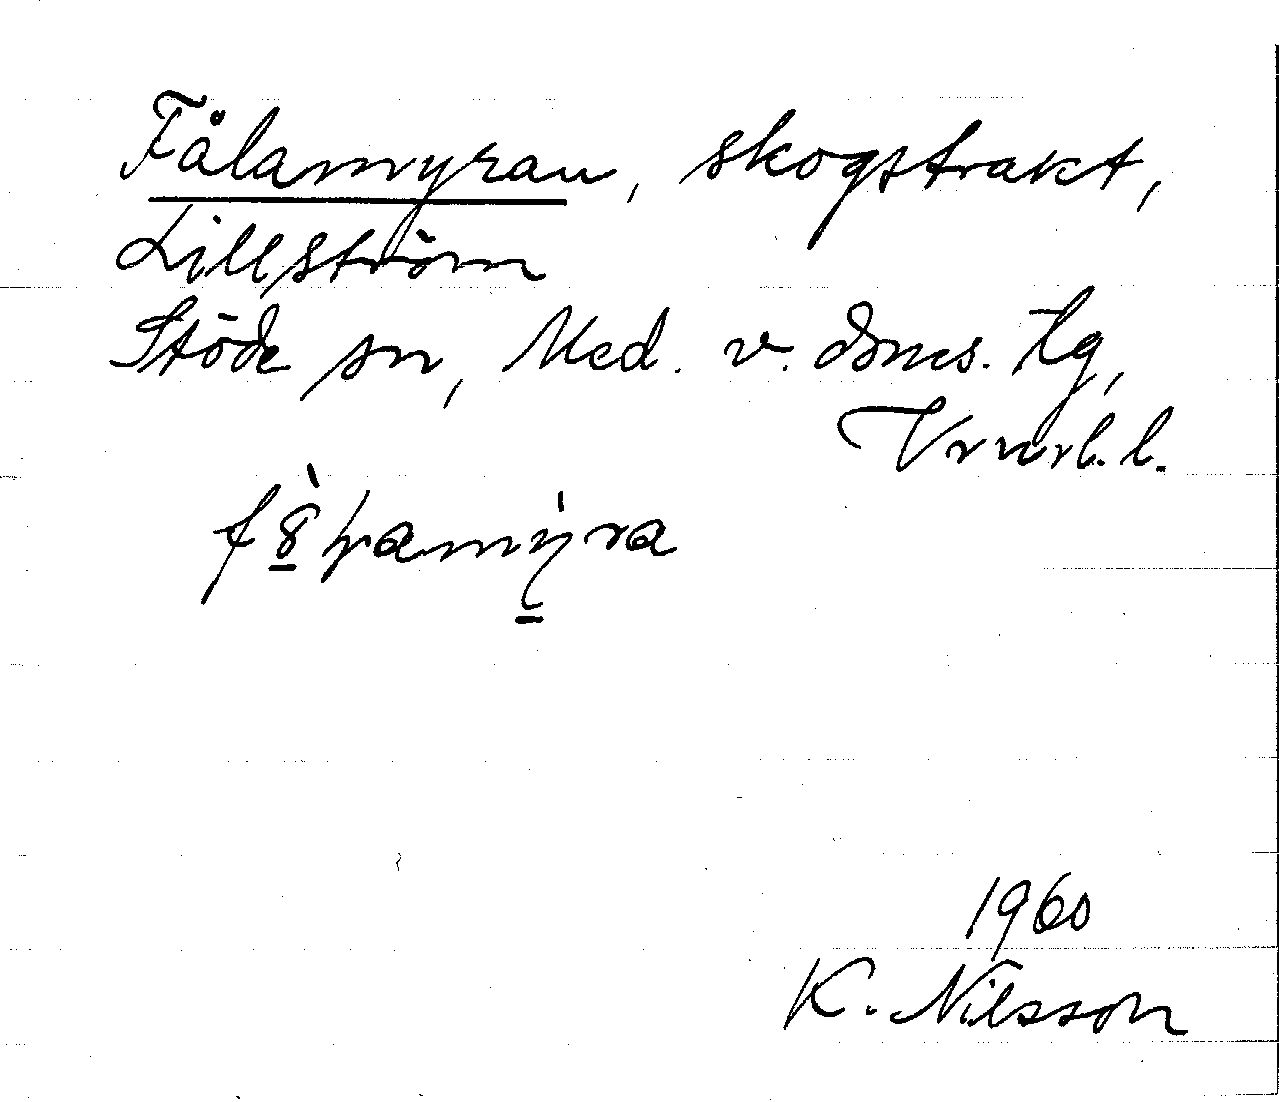 Fålamyran, skogstrakt,
Lillström
Stöde sn, Med. v. doms. tg,
Vrnrl. l.
fȣ̀ƕamỳra
1960
K. Nilsson